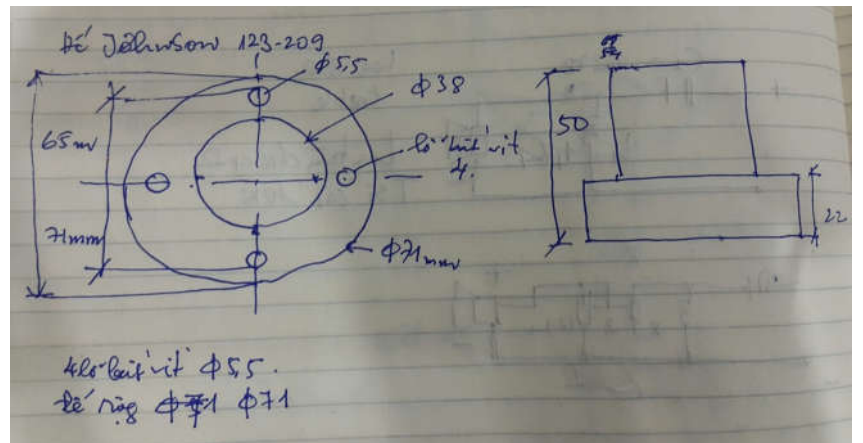 Đế Jëhnson 123-209
ϕ5,5
ϕ38
65
lỗ bắt vít
4.
71mm
ϕ71mm
50
22
4 lỗ bắt vít ϕ5,5.
Đế rộng ϕ71